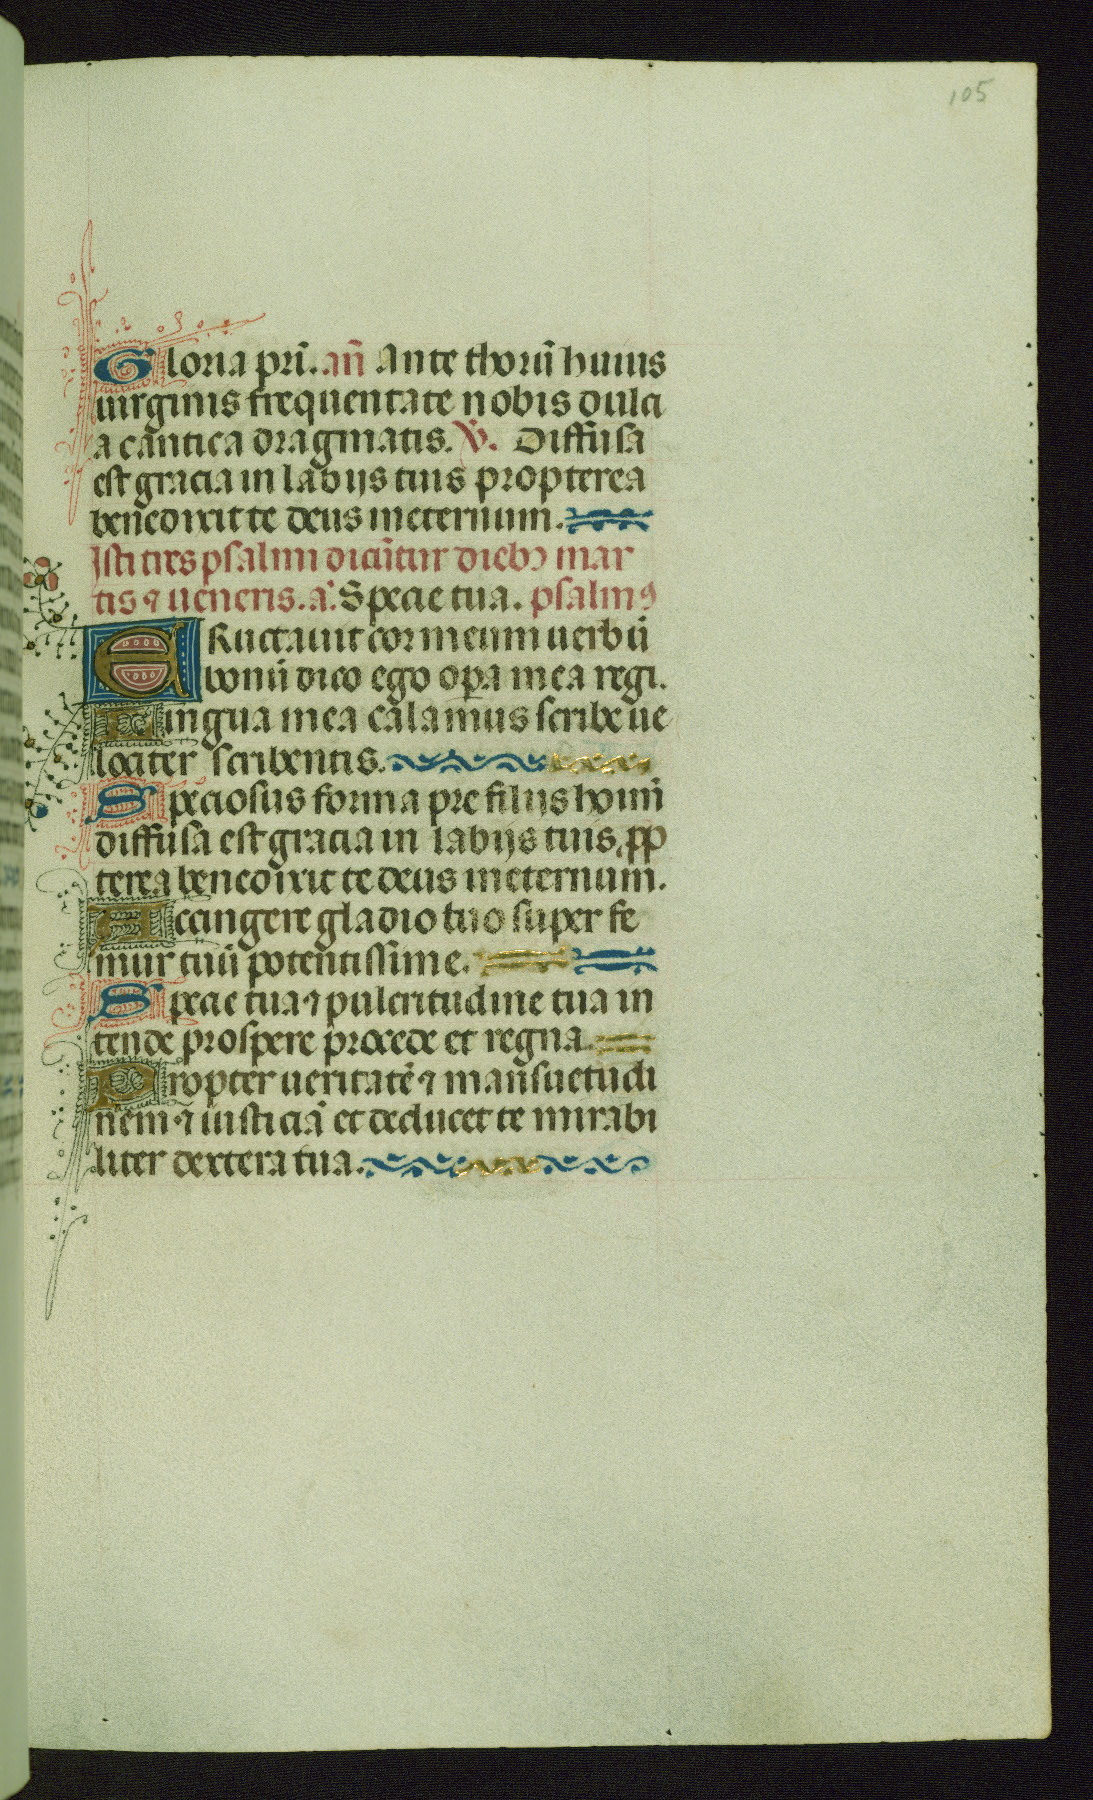 105
Gloria pri̅. an̅ Ante thoru̅ huius
uirginis frequentate nobis dulci
a cantica dragmatis. V̕. Diffusa
est gracia in labijs tuis propterea
benedixit te deus ineternum.
Isti tres psalmi dicu̅tur dieb⁊ mar
tis ⁊ ueneris. a̅. Specie tua. psalmꝰ
ERuctauit cor meum uerbu̅
bonu̅ dico ego op̅a mea regi.
Lingua mea calamus scribe ue
lociter scribentis.
Speciosus forma pre filijs homi̅
diffusa est gracia in labijs tuis, ꝓp
terea benedixit te deus ineternum.
Accingere gladio tuo super fe
mur tuu̅ potentissime.
Specie tua ⁊ pulcritudine tua in
tende prospere procede et regna.
Propter ueritate̅ ⁊ mansuetudi
nem ⁊ iusticia̅ et deducet te mirabi
liter dextera tua.